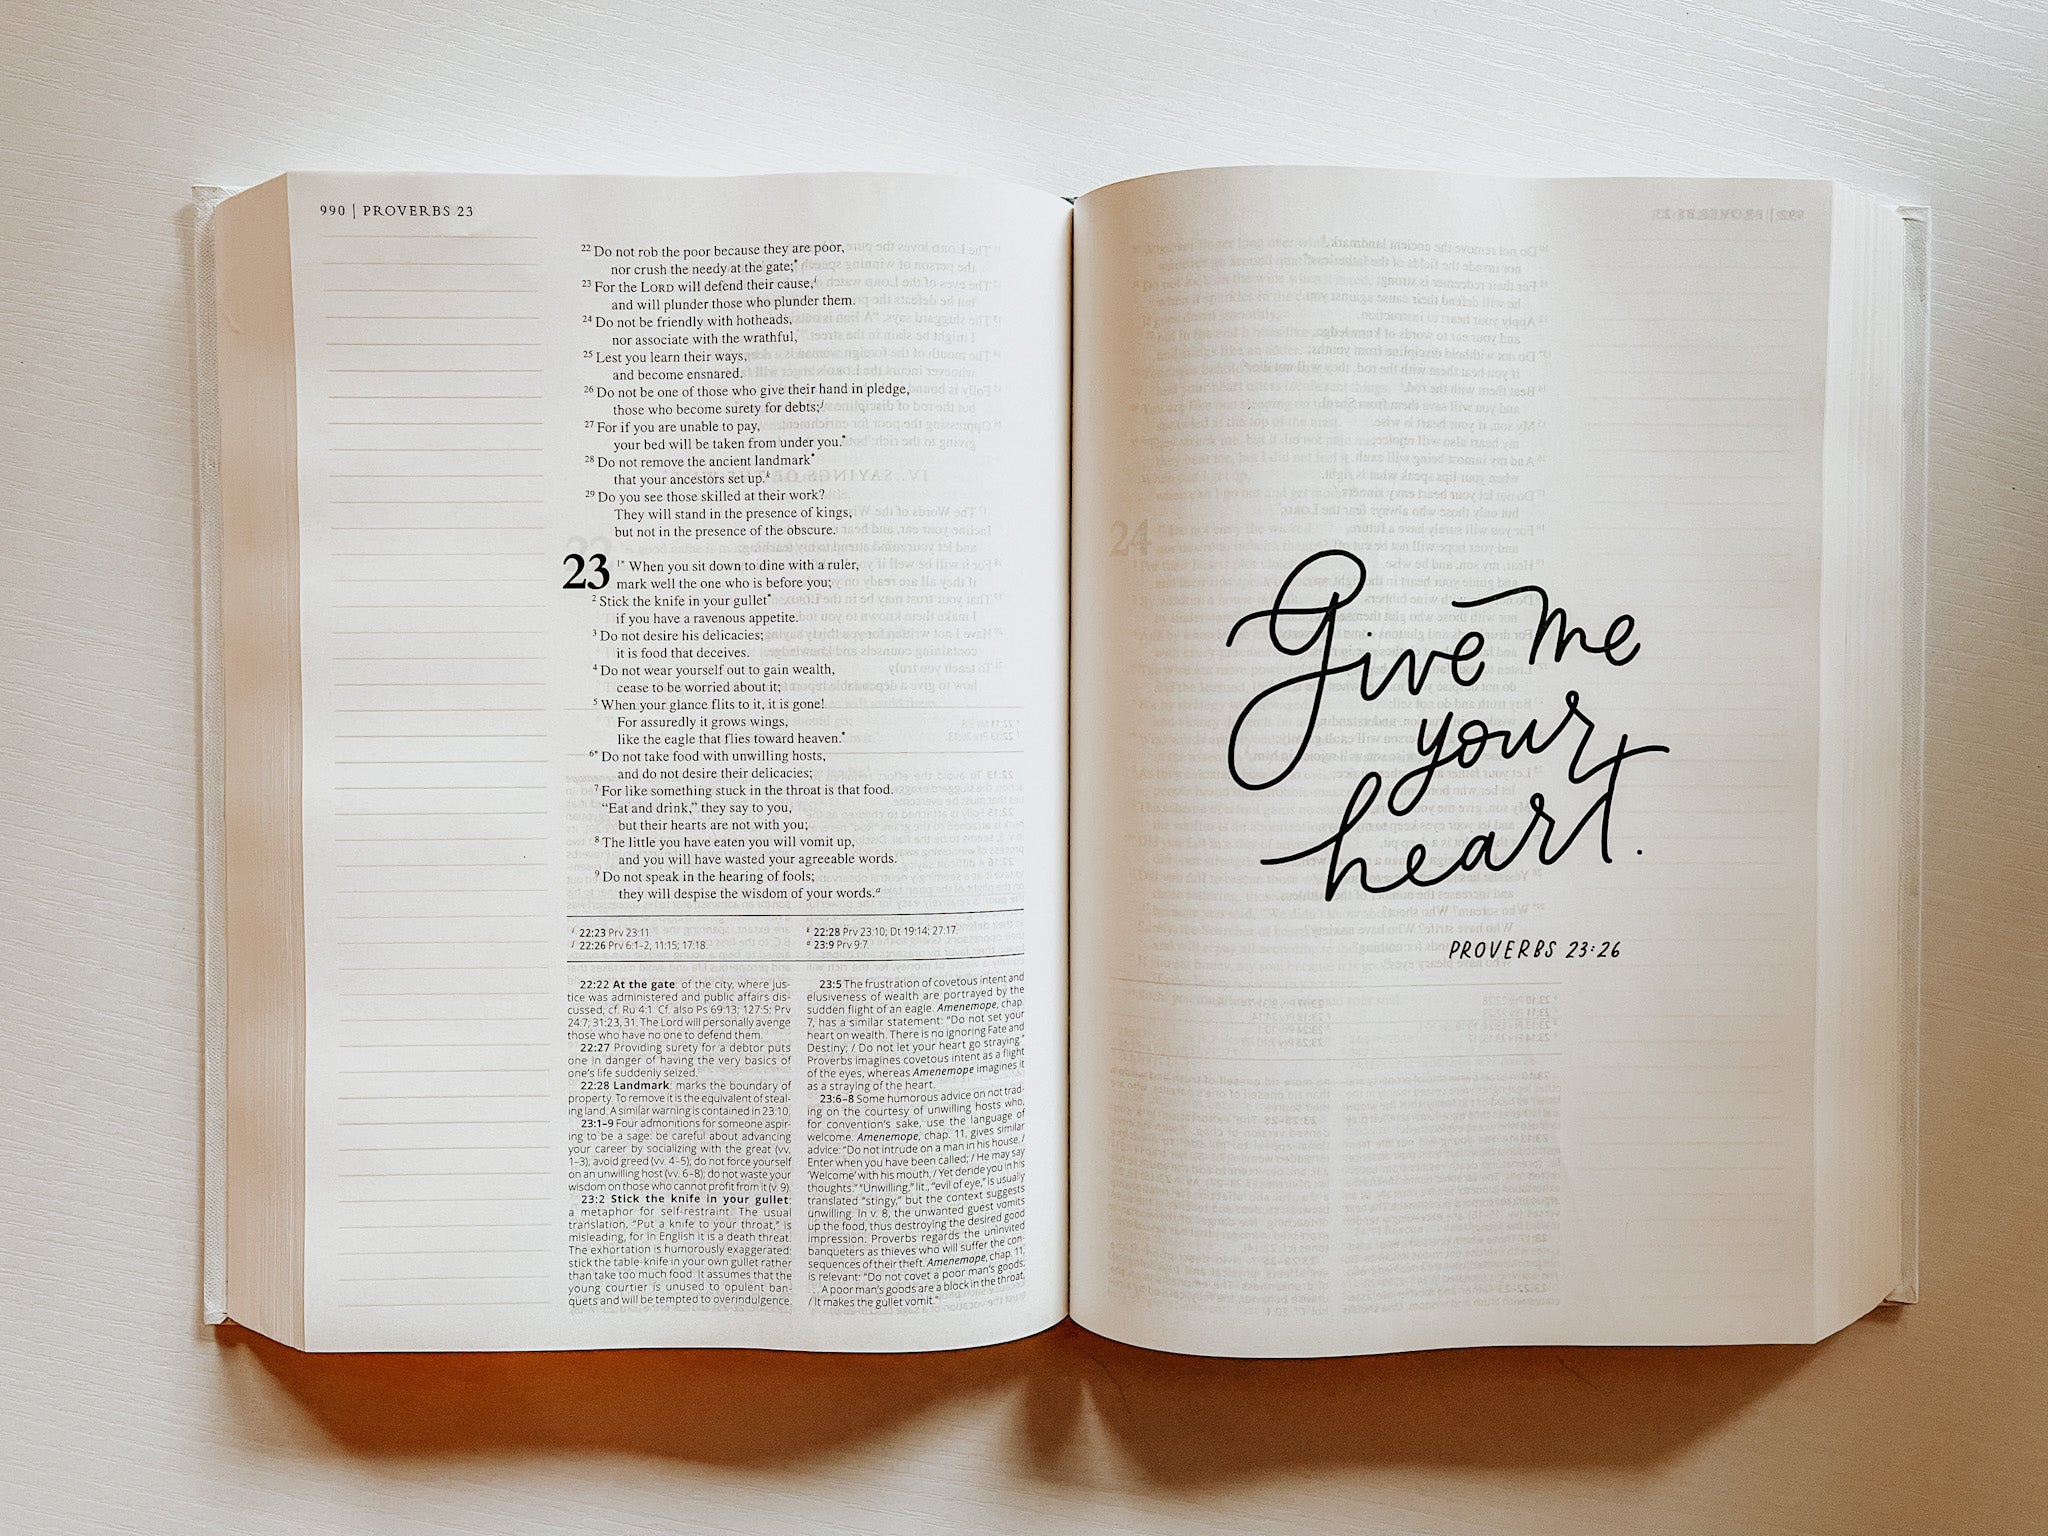 990 | PROVERBS 23
22 Do not rob the poor because they are poor,
nor crush the needy at the gate;*
23 For the LORD will defend their cause,i
and will plunder those who plunder them.
24 Do not be friendly with hotheads,
nor associate with the wrathful,
25 Lest you learn their ways,
and become ensnared.
26 Do not be one of those who give their hand in pledge,
those who become surety for debts;j
27 For if you are unable to pay,
your bed will be taken from under you.*
28 Do not remove the ancient landmark*
that your ancestors set up.k
29 Do you see those skilled at their work?
They will stand in the presence of kings,
but not in the presence of the obscure.
23
1* When you sit down to dine with a ruler,
mark well the one who is before you;
2 Stick the knife in your gullet*
if you have a ravenous appetite.
3 Do not desire his delicacies;
it is food that deceives.
4 Do not wear yourself out to gain wealth,
cease to be worried about it;
5 When your glance flits to it, it is gone!
For assuredly it grows wings,
like the eagle that flies toward heaven.*
6* Do not take food with unwilling hosts,
and do not desire their delicacies;
7 For like something stuck in the throat is that food.
“Eat and drink,” they say to you,
but their hearts are not with you;
8 The little you have eaten you will vomit up,
and you will have wasted your agreeable words.
9 Do not speak in the hearing of fools;
they will despise the wisdom of your words.a
i 22:23 Prv 23:11.
j 22:26 Prv 6:1–2, 11:15; 17:18.
k 22:28 Prv 23:10; Dt 19:14; 27:17.
a 23:9 Prv 9:7.
22:22 At the gate: of the city, where jus-
tice was administered and public affairs dis-
cussed; cf. Ru 4:1. Cf. also Ps 69:13; 127:5; Prv
24:7; 31:23, 31. The Lord will personally avenge
those who have no one to defend them.
22:27 Providing surety for a debtor puts
one in danger of having the very basics of
one’s life suddenly seized.
22:28 Landmark: marks the boundary of
property. To remove it is the equivalent of steal-
ing land. A similar warning is contained in 23:10.
23:1–9 Four admonitions for someone aspir-
ing to be a sage: be careful about advancing
your career by socializing with the great (vv.
1–3); avoid greed (vv. 4–5); do not force yourself
on an unwilling host (vv. 6–8); do not waste your
wisdom on those who cannot profit from it (v. 9).
23:2 Stick the knife in your gullet:
a metaphor for self-restraint. The usual
translation, “Put a knife to your throat,” is
misleading, for in English it is a death threat.
The exhortation is humorously exaggerated:
stick the table-knife in your own gullet rather
than take too much food. It assumes that the
young courtier is unused to opulent ban-
quets and will be tempted to overindulgence.
23:5 The frustration of covetous intent and
elusiveness of wealth are portrayed by the
sudden flight of an eagle. Amenemope, chap.
7, has a similar statement: “Do not set your
heart on wealth. There is no ignoring Fate and
Destiny; / Do not let your heart go straying.”
Proverbs imagines covetous intent as a flight
of the eyes, whereas Amenemope imagines it
as a straying of the heart.
23:6–8 Some humorous advice on not trad-
ing on the courtesy of unwilling hosts who,
for convention’s sake, use the language of
welcome. Amenemope, chap. 11, gives similar
advice: “Do not intrude on a man in his house, /
Enter when you have been called; / He may say
‘Welcome’ with his mouth, / Yet deride you in his
thoughts.” “Unwilling,” lit., “evil of eye,” is usually
translated “stingy,” but the context suggests
unwilling. In v. 8, the unwanted guest vomits
up the food, thus destroying the desired good
impression. Proverbs regards the uninvited
banqueters as thieves who will suffer the con-
sequences of their theft. Amenemope, chap. 11,
is relevant: “Do not covet a poor man’s goods,
. . . A poor man’s goods are a block in the throat,
/ It makes the gullet vomit.”
Give me
your
heart.
PROVERBS 23:26